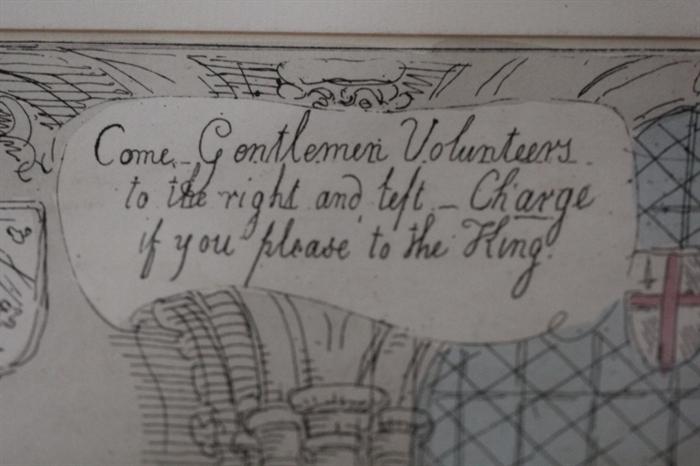 Come_ Gentlemen Volunteers
to the right and left _ Charge
if you please to the King.